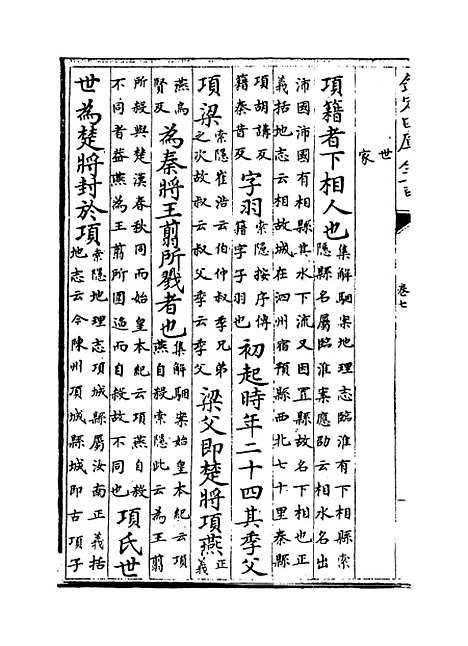 欽定四庫全書
卷七
世
家
項籍者下相人也
集解駰案地理志臨淮有下相縣索
隱縣名屬臨淮案應劭云相水名出
沛國沛國有相縣其水下流又因置縣故名下相也正
義括地志云相故城在泗州宿預縣西北七十里秦縣
項胡講反
籍秦昔反
字羽
索隱按序傳
籍字子羽也
初起時年二十四其季父
項梁
索隱崔浩云伯仲叔季兄弟
之次故叔云叔父季云季父
梁父即楚將項燕
正
義
燕烏
賢反
為秦將王翦所戮者也
集解駰案始皇本紀云項
燕自殺索隱此云為王翦
所殺與楚漢春秋同而始皇本紀云項燕自殺
不同者葢燕為王翦所圍逼而自殺故不同也
項氏世
世為楚將封於項
索隱地理志項城縣屬汝南正義括
地志云今陳州項城縣城即古項子